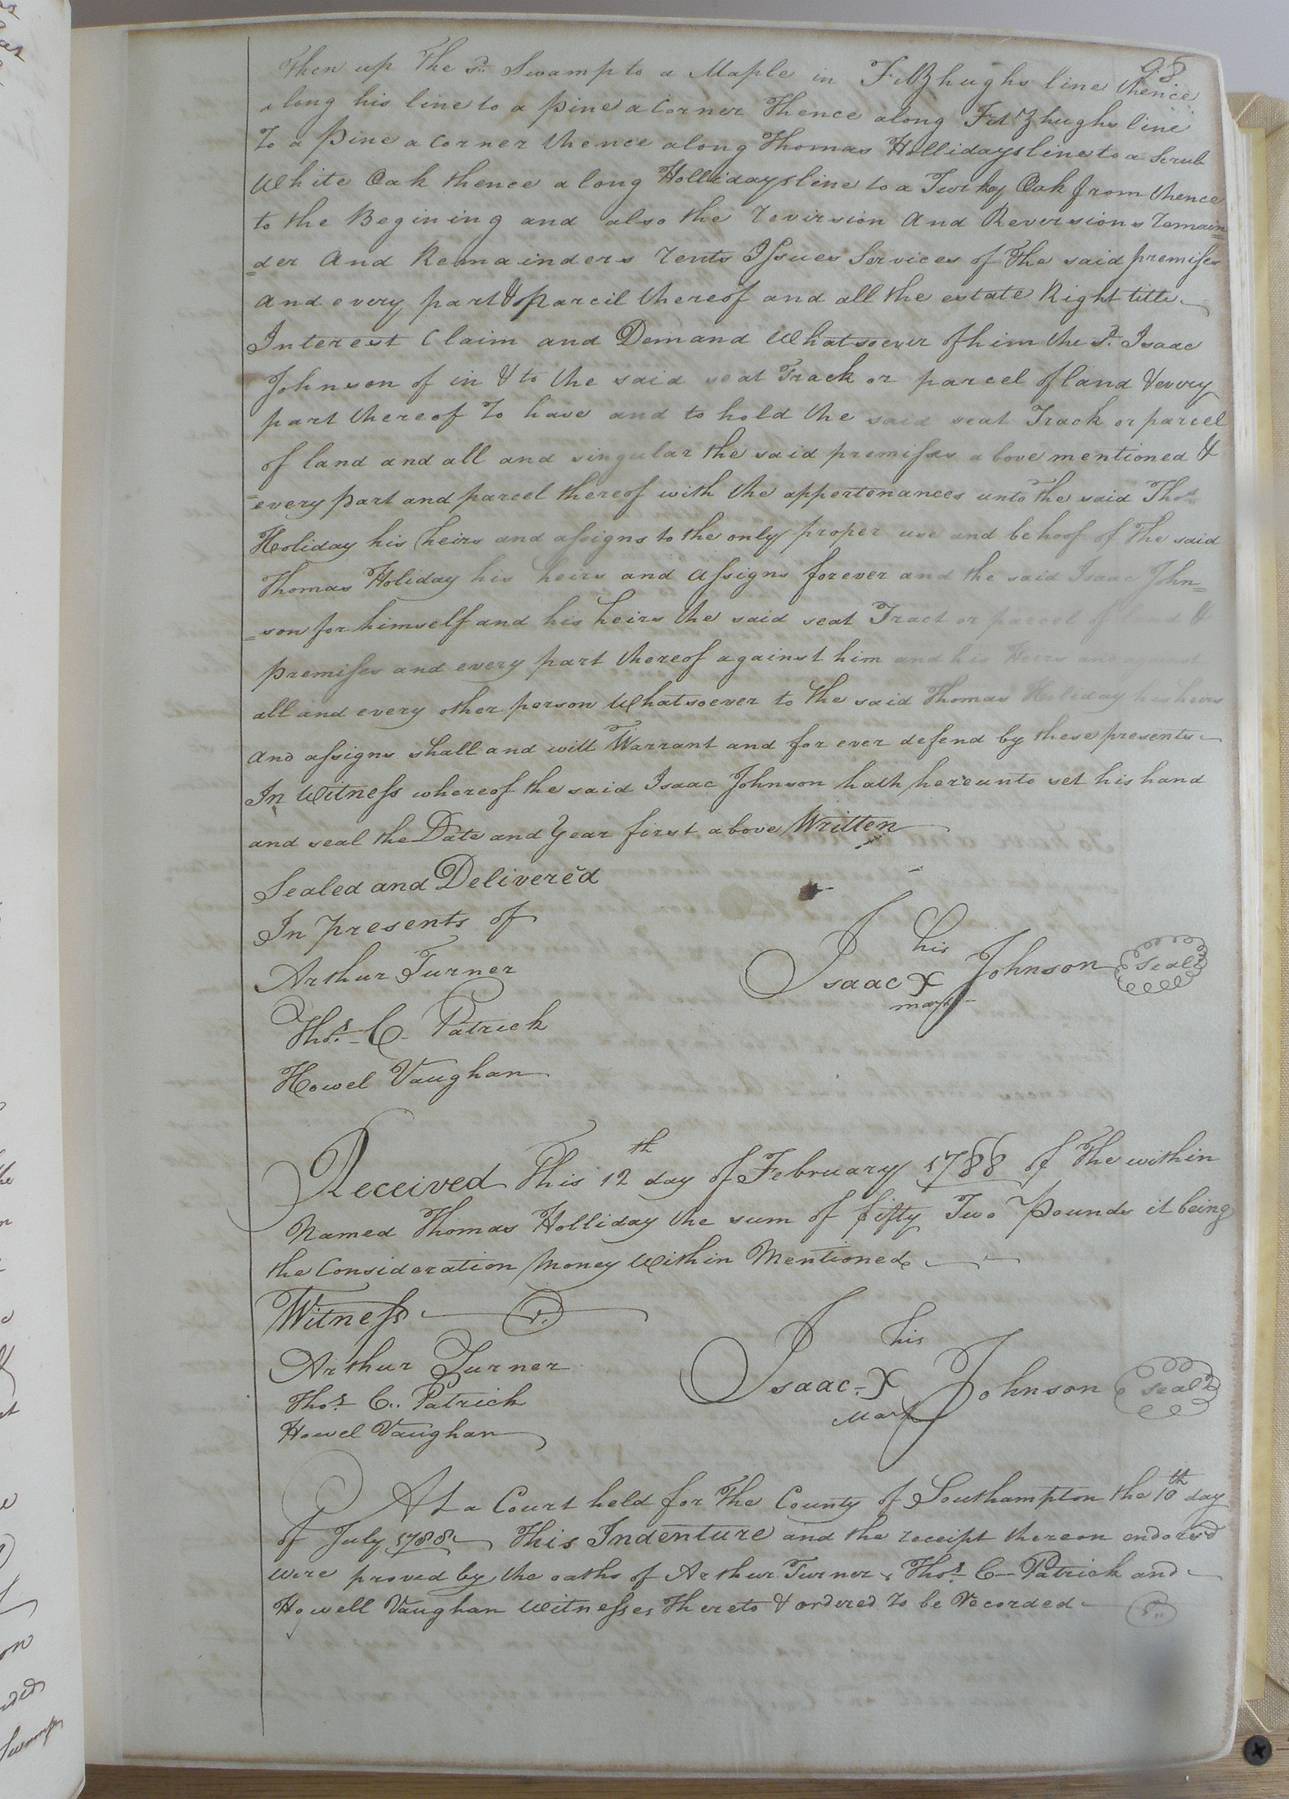 98.
Then up the sd. Swamp to a Maple in FitzHughs line thence
along his line to a pine a Corner Thence along FitzHughs line
To a Pine a Corner thence along Thomas Hollidays line to a Scrub
White Oak thence along Hollidays line to a Turkey Oak from thence
to the Begining and also the revirsion And Reversions remain=
=der And Remainders rents Issues Services of the said premises
and every part & parcil thereof and all the estate Right title
Interest Claim and Demand Whatsoever of him the sd. Isaac
Johnson of in & to the said seat Track or parcel of land & every
part thereof To have and to hold the said seat Track or parcel
of land and all and singular the said premises above mentioned &
=every part and parcel thereof with the appertenances unto the said Thos.
Holiday his heirs and assigns to the only proper use and behoof of the said
Thomas Holiday his heirs and assigns forever and the said Isaac John=
=son for himself and his heirs the said seat Tract or parcel of land &
premises and every part thereof against him and his Heirs and against
all and every other person Whatsoever to the said Thomas Holiday his heirs
And assigns shall and will Warrant and for ever defend by these presents
In Witness whereof the said Isaac Johnson hath hereunto set his hand
and seal the Date and Year first above Written
Sealed and Delivered
In presents of
Arthur Turner
Thos. C. Patrick
Howel Vaughan
his
Isaac X Johnson Seal
mark
Received This 12th day of February 1788 of The within
Named Thomas Holliday the sum of fifty Two Pounds it being
the Consideration Money Within Mentioned
Witness
Arthur Turner
Thos. C. Patrick
Howel Vaughan
his
Isaac X Johnson Seal
Mark
At a Court held for The County of Southampton the 10th day
of July 1788 This Indenture and the receipt thereon endorsd
were proved by the oaths of Arthur Turner, Thos. C. Patrick and
Howell Vaughan Witnesses Thereto & ordered To be Recorded